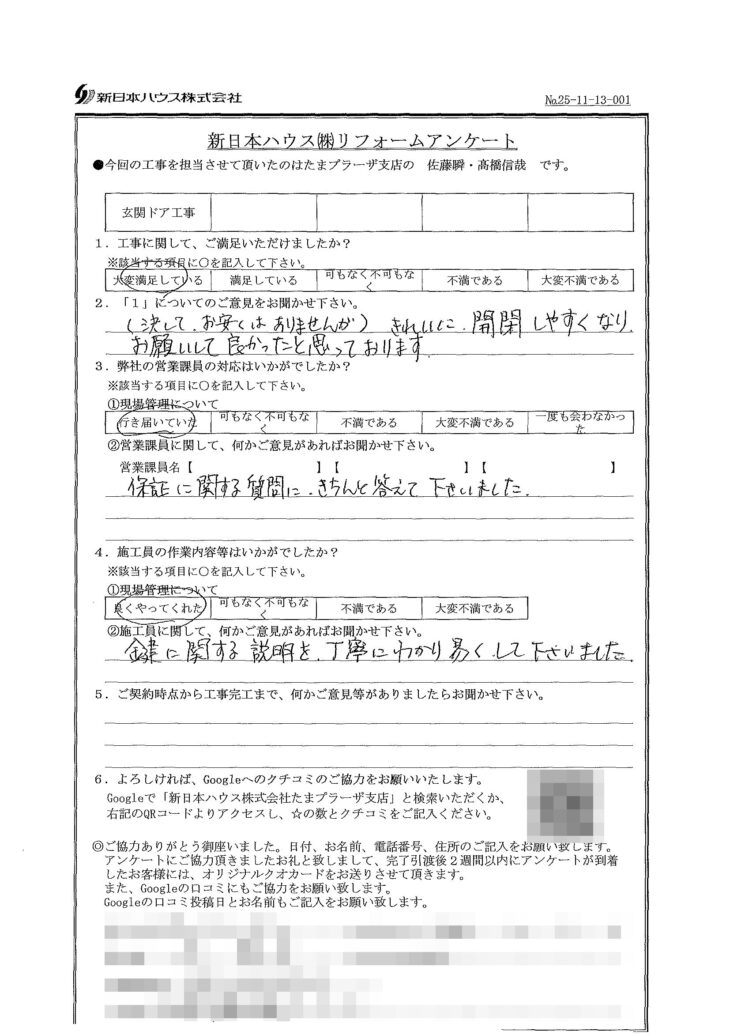 新日本ハウス株式会社
No.25-11-13-001
新日本ハウス㈱リフォームアンケート
●今回の工事を担当させて頂いたのはたまプラーザ支店の 佐藤瞬・髙橋信哉 です。
玄関ドア工事
1．工事に関して、ご満足いただけましたか？
※該当する項目に○を記入して下さい。
大変満足している 満足している 可もなく不可もなく 不満である 大変不満である
2．「1」についてのご意見をお聞かせ下さい。
(決して、お安くはありませんが) きれいに、開閉しやすくなり、
お願いして良かったと思っております。
3．弊社の営業課員の対応はいかがでしたか？
※該当する項目に○を記入して下さい。
①現場管理について
行き届いていた 可もなく不可もなく 不満である 大変不満である 一度も会わなかった
②営業課員に関して、何かご意見があればお聞かせ下さい。
営業課員名【 】【 】【 】
保証に関する質問に、きちんと答えて下さいました。
4．施工員の作業内容等はいかがでしたか？
※該当する項目に○を記入して下さい。
①現場管理について
良くやってくれた 可もなく不可もなく 不満である 大変不満である
②施工員に関して、何かご意見があればお聞かせ下さい。
鍵に関する説明を、丁寧にわかり易くして下さいました。
5．ご契約時点から工事完工まで、何かご意見等がありましたらお聞かせ下さい。
6．よろしければ、Googleへのクチコミのご協力をお願いいたします。
Googleで「新日本ハウス株式会社たまプラーザ支店」と検索いただくか、
右記のQRコードよりアクセスし、☆の数とクチコミをご記入ください。
◎ご協力ありがとう御座いました。日付、お名前、電話番号、住所のご記入をお願い致します。
アンケートにご協力頂きましたお礼と致しまして、完了引渡後2週間以内にアンケートが到着
したお客様には、オリジナルクオカードをお送りさせて頂きます。
また、Googleの口コミにもご協力をお願い致します。
Googleの口コミ投稿日とお名前もご記入をお願い致します。